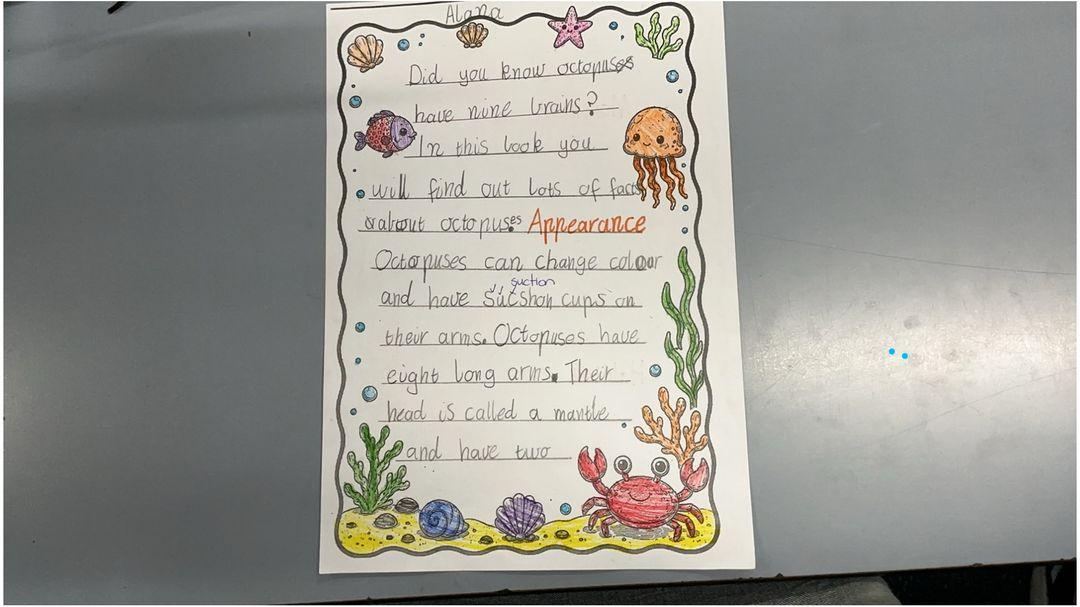 Alana
Did you know octopuses
have nine brains?
In this book you
will find out lots of facts
about octopuses Appearance
Octopuses can change colour
suction
and have sucshon cups on
their arms. Octopuses have
eight long arms. Their
head is called a mantle
and have two